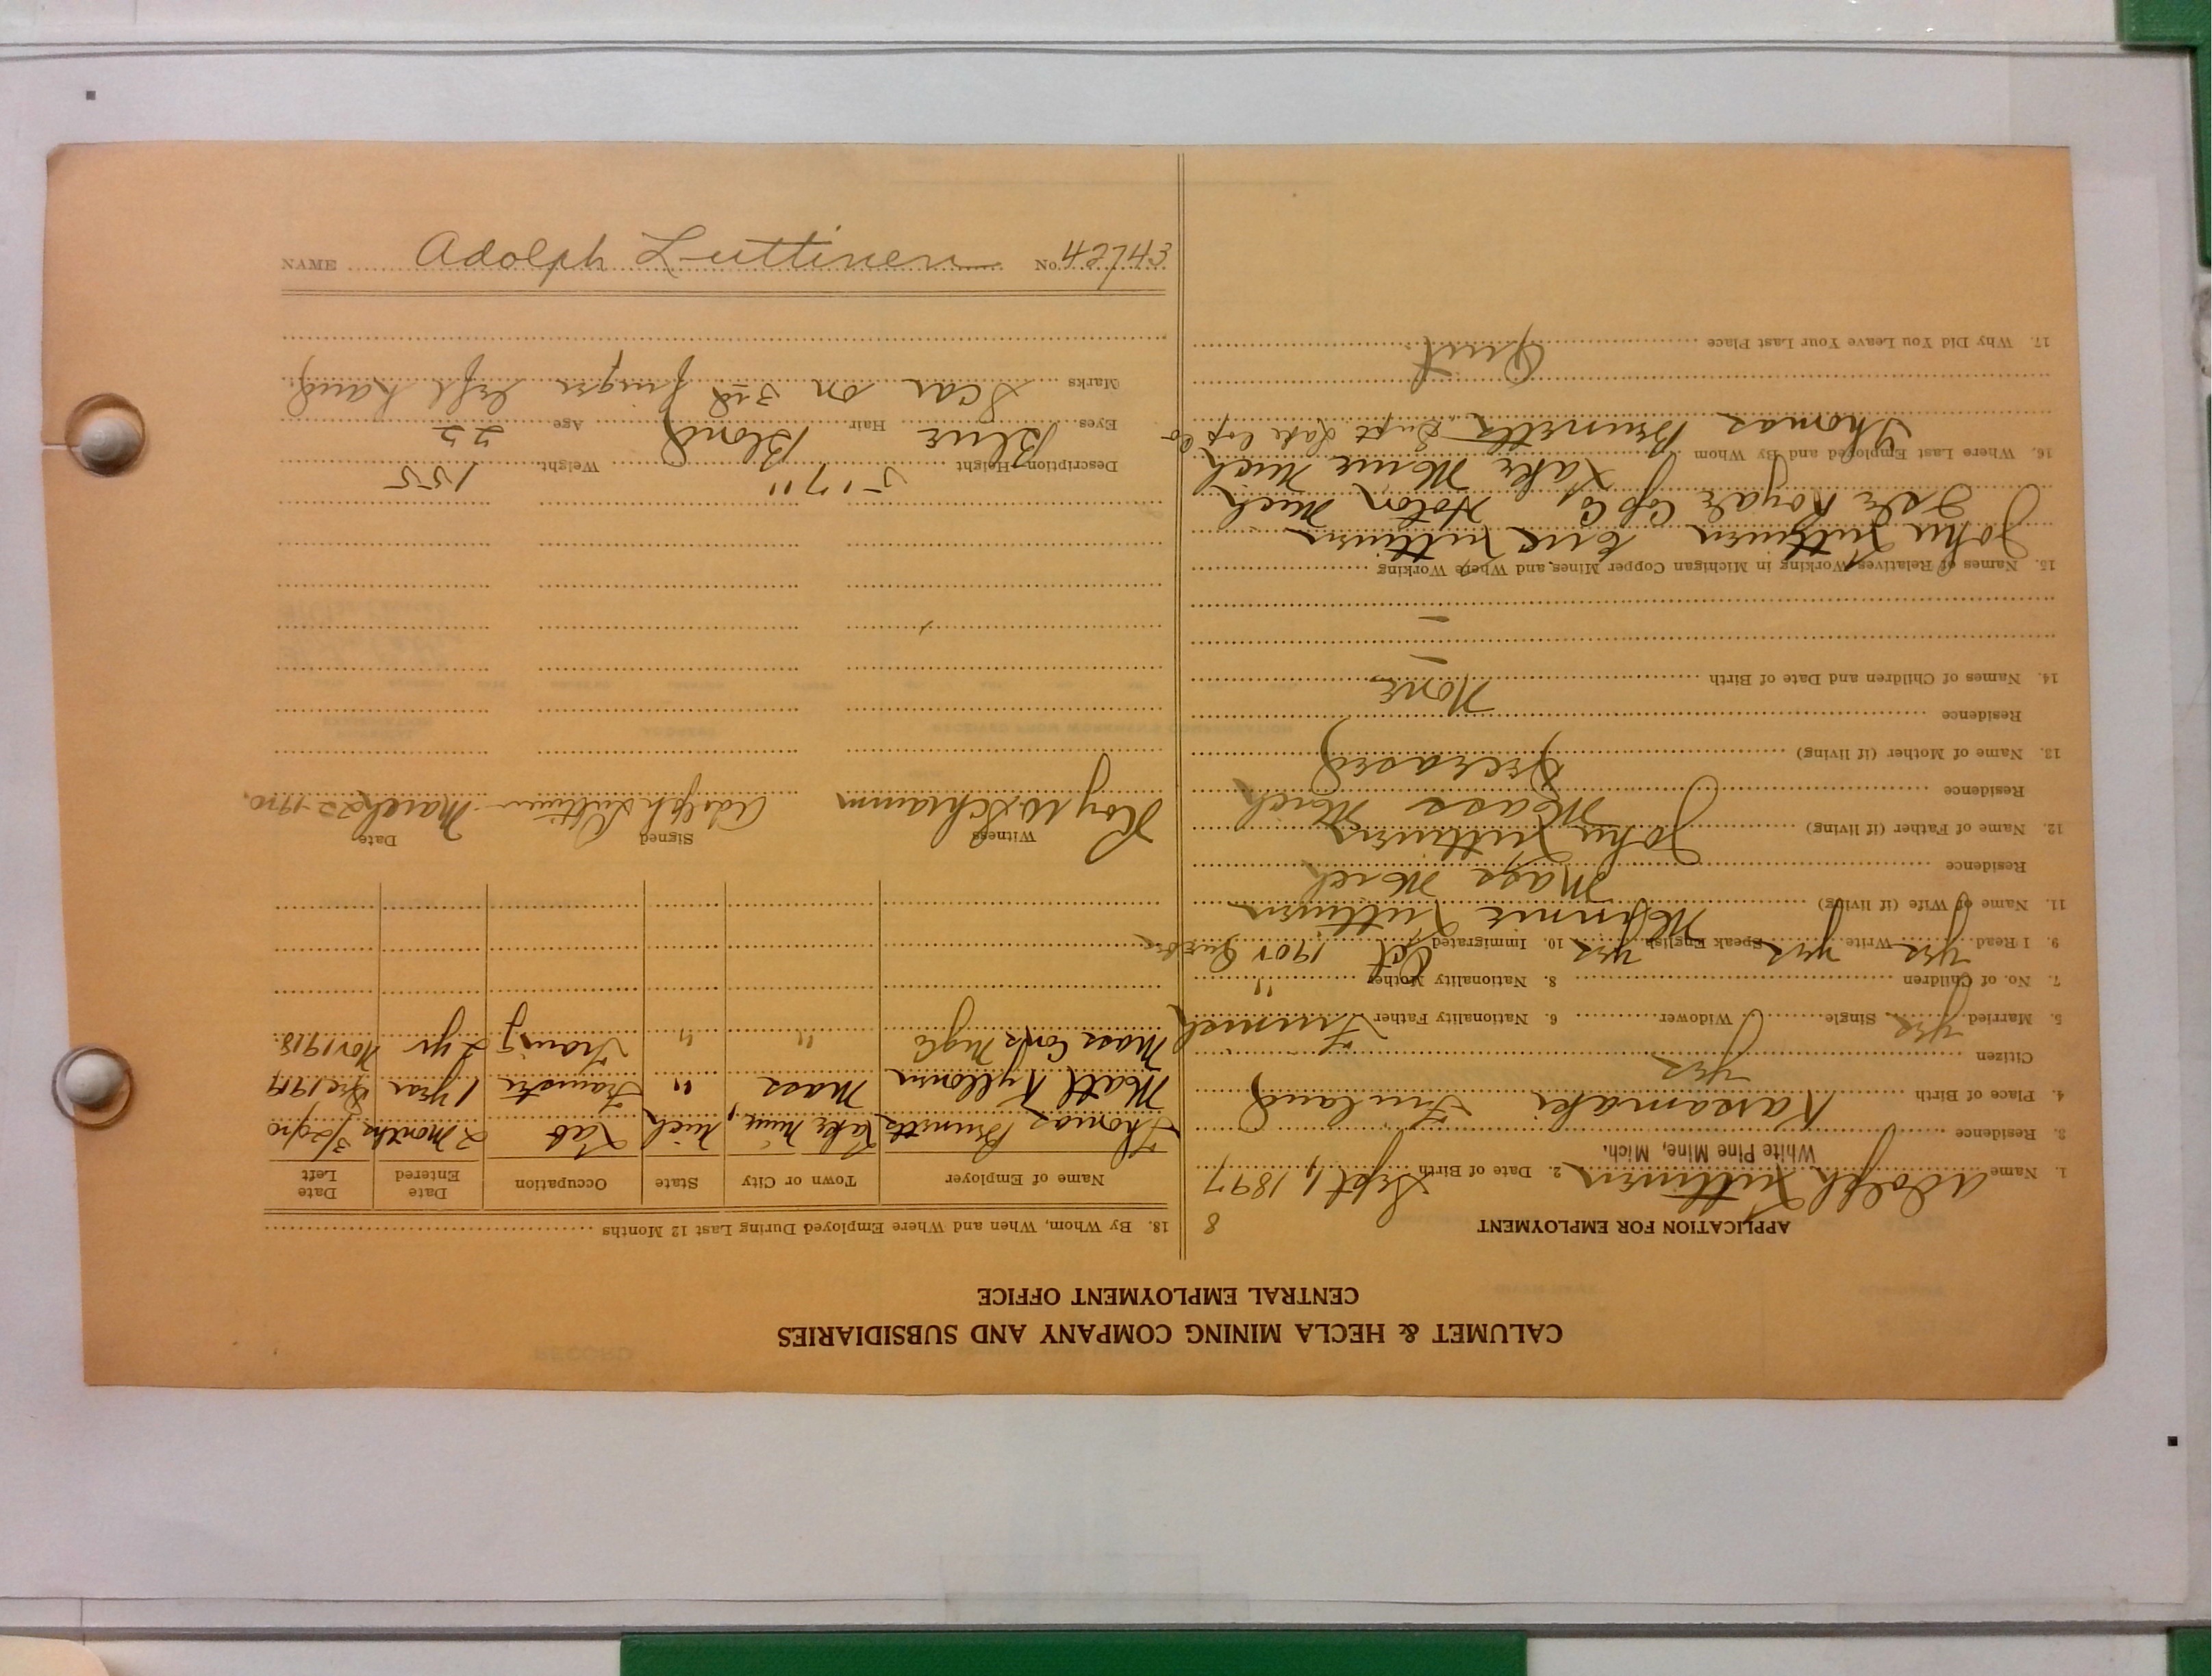 CALUMET & HECLA MINING COMPANY AND SUBSIDIARIES
CENTRAL EMPLOYMENT OFFICE
APPLICATION FOR EMPLOYMENT 8
1. Name Adolph Luttinen 2. Date of Birth Sept 1, 1897
White Pine Mine, Mich.
3. Residence
4. Place of Birth Finland
Citizen yes
5. Married yes Single Widower 6. Nationality Father Finnish
7. No. of Children 8. Nationality Mother "
9. I Read yes Write yes Speak English yes 10. Immigrated Oct 1901
11. Name of Wife (if living) Minnie Luttinen
Residence Mass Mich
12. Name of Father (if living) John Luttinen
Residence Mass Mich
13. Name of Mother (if living) Deceased
Residence
14. Names of Children and Date of Birth None
–
–
15. Names of Relatives Working in Michigan Copper Mines, and Where Working
John Luttinen Eric Luttinen
Isle Royale Cop Co, Hoton Mich
16. Where Last Employed and By Whom Lake Mine Mich
Thomas Brunetts, Supt Lake Cop Co
17. Why Did You Leave Your Last Place Quit
18. By Whom, When and Where Employed During Last 12 Months
Name of Employer Town or City State Occupation Date Entered Date Left
Thomas Brunetts Lake Mine, Mich Lab 2 months 3/20/20
Matt Kyllonen Mass " Teamster 1 year Dec 1919
Mass Cons " " Tramg 2 yr Nov 1918.
Witness Signed Date
Roy W Schramm Adolph Luttinen March 22 1920.
Description—Height 5' 7" Weight 155
Eyes Blue Hair Blond Age 22
Marks Scar on 3rd finger left hand
NAME Adolph Luttinen No. 42743